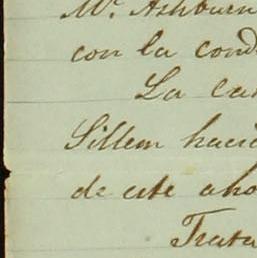 Mr. Ashburn
con la cond
La ca
Sillem hacie
de este aho
Trata